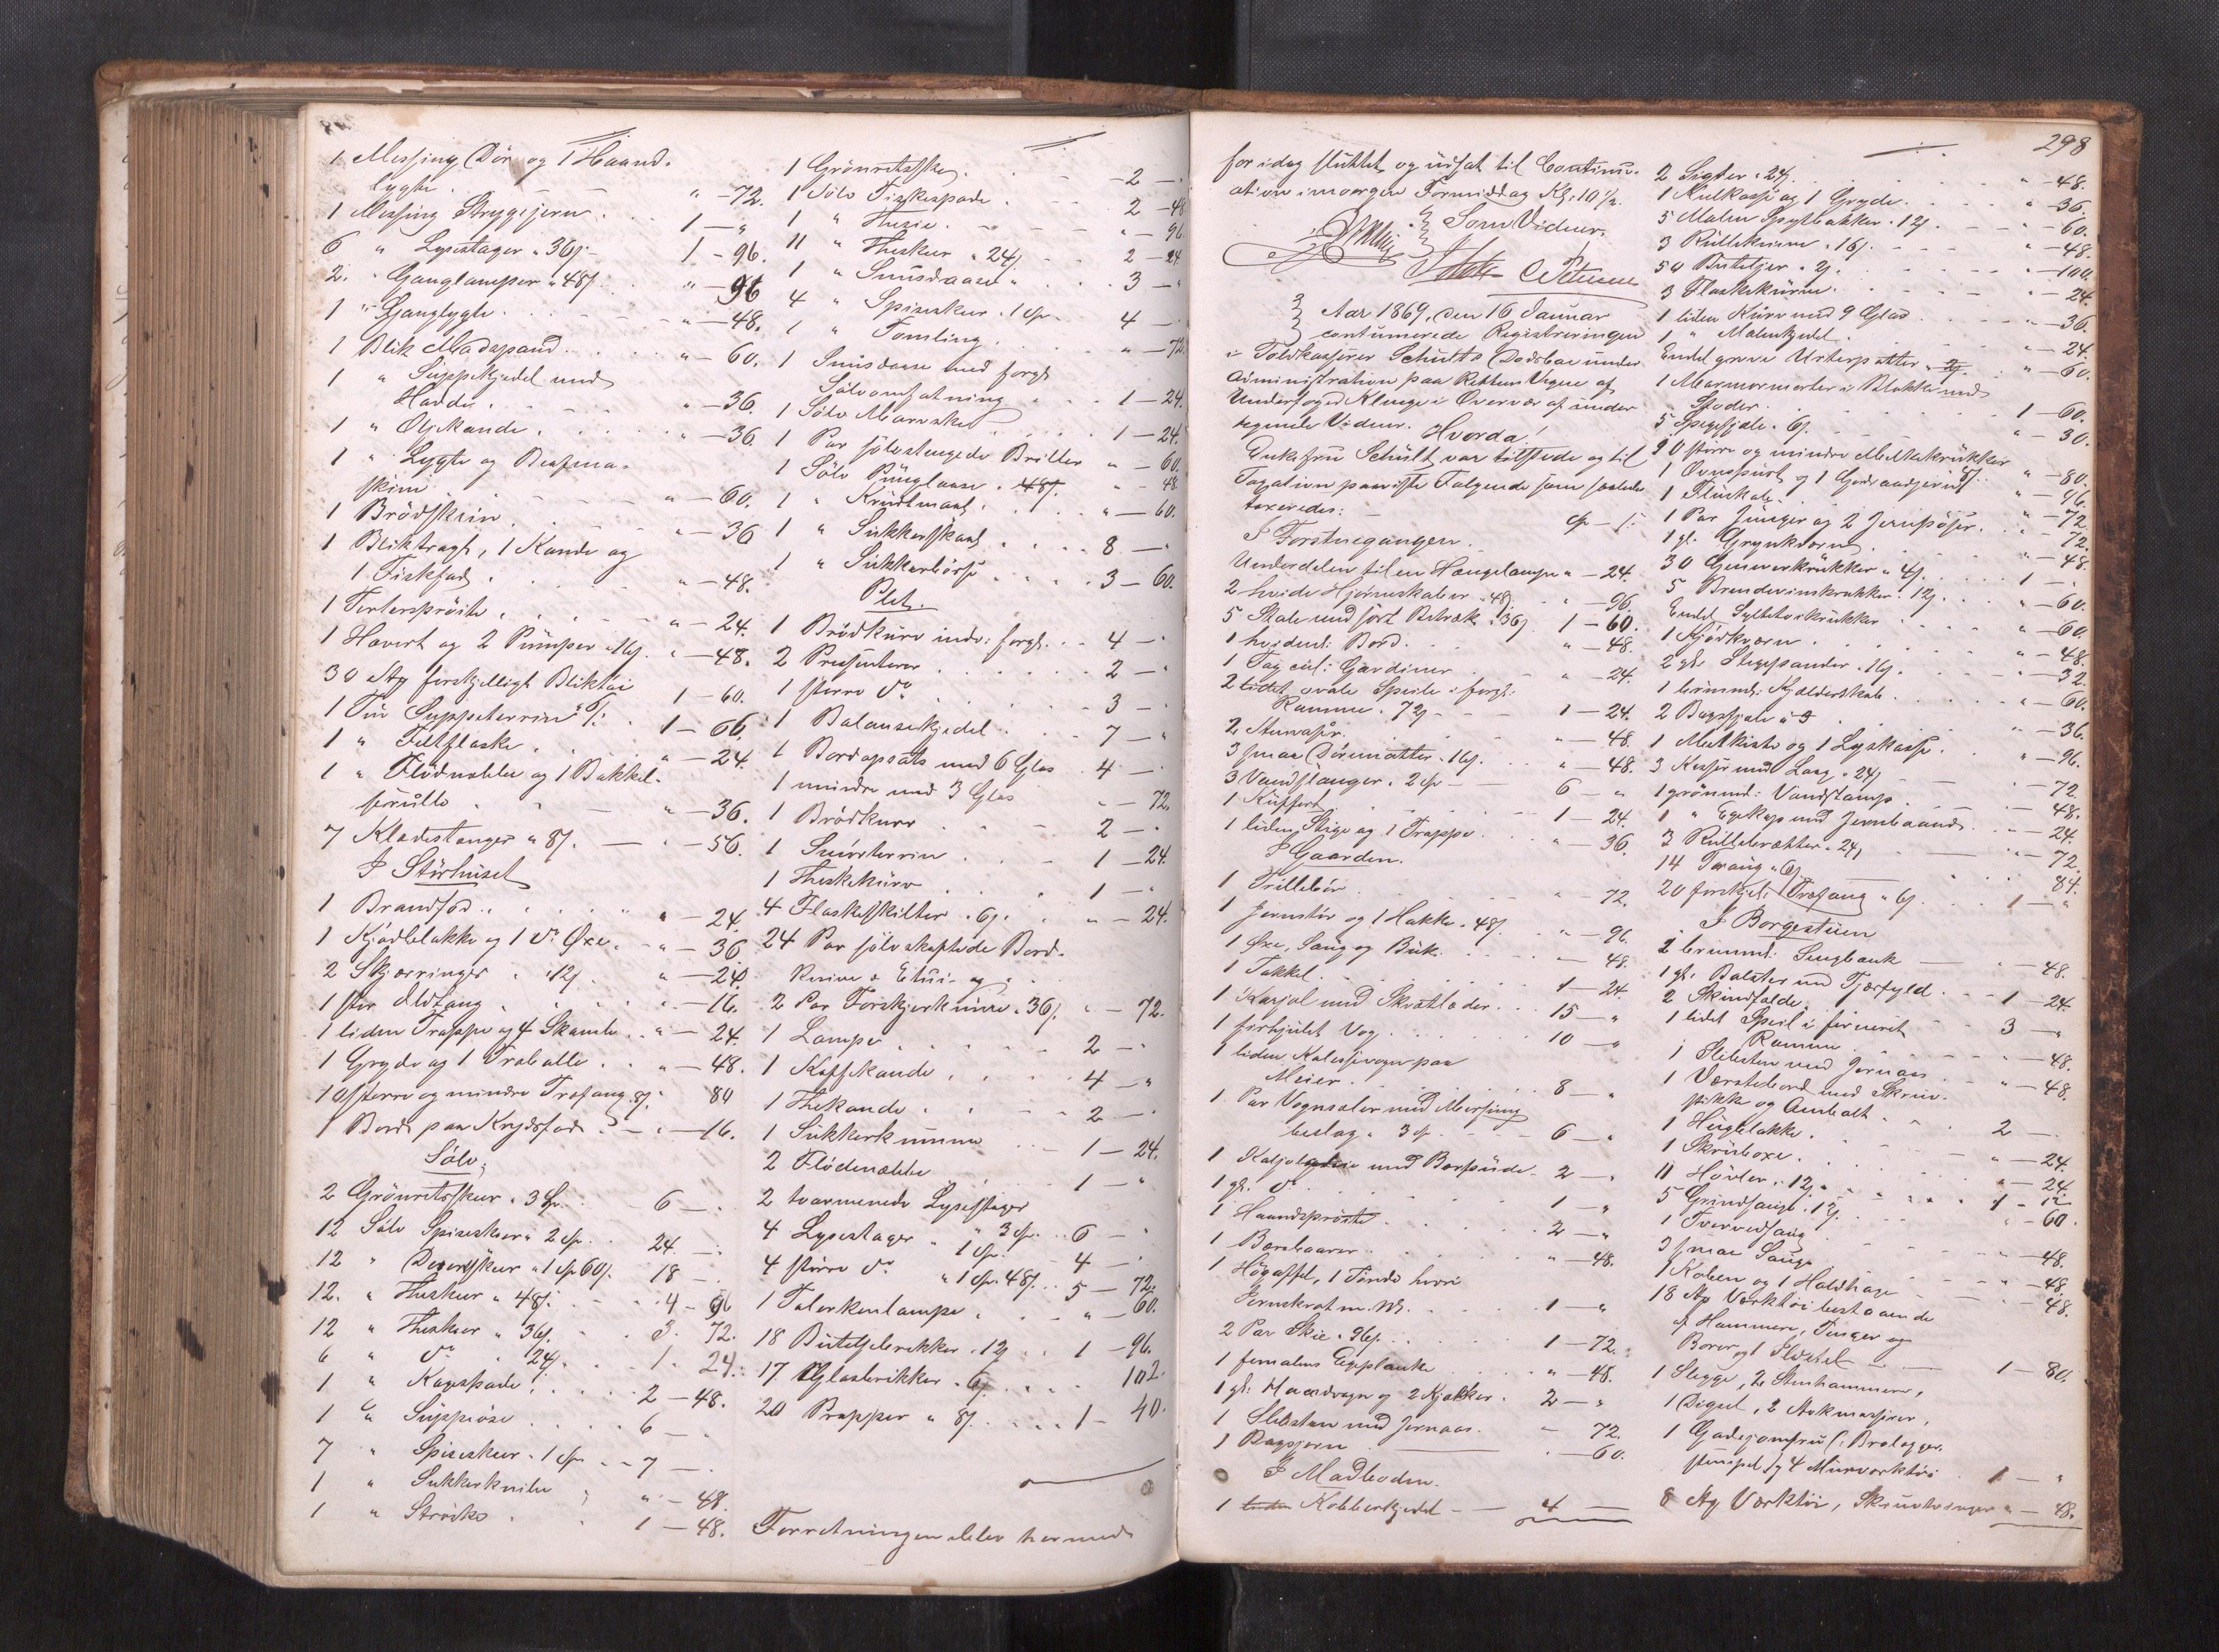 1 Messing Dør og 1 Haand-
lygte . " - 72.
1 Messing Strygejern . . 1 - "
6 " Lysestager " 36ſ - 1 - 96.
2. " Ganglamper " 48ſ " - 96
1 " Ganglygte . . " - 48.
1 Blik Madspand . . . " - 60.
1 " Suppekjedel med
. . " - 36.
1 " Oljekande . . . . " - 36
1 " Lygte og
. . . " - 60.
1 Brødskrin . . . " - 36
1 Bliktragt, 1 Kande og
1 Fiskfad . . . " - 48.
1 Tertersprøite . . . " - 24.
1 Hævert og 2 Pumper " 16ſ. " - 48.
30 Stp forskjelligt Bliktøi 1 - 60.
1 Tin Suppeterrin 1 - 66.
1 " Feltflaske . " - 24.
1 " Flødnebbe og 1 Bakkel-
" - 36.
7 Kladestanger " 8ſ. — " - 56.
I Størhuset
1 Brandfad . . . . " - 24.
1 Kjødblakke og 1 do Øxe . " - 36
2 Skjærringer " 12ſ " - 24.
1 stor Ildtang . . . . - 16.
1 liden Trappe og 4 Skamler . " - 24.
1 Gryde og 1 Traballe . . " - 48.
10 større og mindre Træfang 8ſ. " 80
1 Bord paa Krydsfod . — " - 16.
Sølv.
2 Grønretsskeer " 3 Sp. . 6 - "
12 Sølv Spiseskeer " 2 Sp. . 24 - "
12 " Dessertskeer " 1 Sp 60ſ. 18 -
12. " Theskeer " 48ſ. . . 4 - 96
12 " Theskeer " 36ſ. . . 3. 72.
6 " do " 24ſ. . . 1. 24.
1 " Kagespade . . . 2 - 48.
1 " Suppeøse . . . 6 - .
7 " Spiseskeer " 1 Sp - - 7 -
1 " Sukkerknibe " - 48.
1 " Strøske . 1 - 48.
1 Grønretsske . . . 2 - "
1 Sølv Fiskespade . . 2 - 48
1 " Thesie . - - " - 96.
11 " Theskeer " 24ſ . . 2 - 24
1 " Snusdaase " . . . 3 - "
4 " Spiseskeer " 1 Sp . . 4 -
1 " Tomling . . . " - 72.
1 Snusdaase med forgt
Sølvomfatning . . . 1 - 24.
1 Sølv Marvske . . . 1 - 24.
1 Par sølvstangede Briller " - 60.
1 Sølv Punglaase . 48ſ. " - 48.
1 " Krudtmaal . . . " - 60.
1 " Sukkerskaal . . . 8 - "
1 " Sukkerbørse . . . 3 - 60.
Plet.
1 Brødkurv indv: forgt. . . 4 - "
2 Presenterer . . . . 2 - "
1 større do . . . . 3 - .
1 Balansekjedel . . . 7 - "
1 Bordopsats med 6 Glas . 4 - .
1 mindre med 3 Glas " - 72
1 Brødkurv . . . . 2 - "
1 Smørterrin . . . 1 - 24.
1 Theskekurv . . . . 1 - "
4 Flaskeskilter " 6ſ. . . " - 24.
24 Par sølvskaftede Bord-
knive i Etui og
2 Par Forskjærknive " 36ſ. " - 72.
1 Lampe . . . . . 2 - "
1 Kaffekande . . . . 4 - "
1 Thekande . . - - 2 - .
1 Sukkerkumme . . 1 - 24.
2 Flødenebbe . . . 1 - "
2 toarmenede Lysestager
" 3 Sp . . 6 - "
4 Lysestager " 1 Sp. 4 -
4 større do " 1 Sp 48ſ. . 5 - 72.
1 Talerkenlampe . . . " - 60.
18 Butelebrikker " 12ſ . . 1 - 96.
17 Glasbrikker " 6ſ . . . . 102.
20 Propper " 8ſ . . . . 1 - 40.
Forretningen blev hermed
298
for idag sluttet og udsat til Continu-
ation imorgen Formiddag Kl. 10 ½.
Som Vidner.
Petersen
Aar 1869, den 16 Januar
continuerede Registreringen
i Toldkasserer Schultz Dødsbo under
Administration paa Rettens Vegne af
Underfoged Klinge i Overvær af under
tegnede Vidner. Hvorda!
Enkefru Schultz var tilstede og til
Taxation paaviste Følgende som saaledes
taxeredes: Sp - ſ:
I Forstuegangen.
Underdelen til en Hængelampe " - 24.
2 hvide Hjørneskaber " 48ſ. . " - 96.
5 Stole med sort Betræk " 36ſ 1 - 60.
1 hvidmt: Bord . . . " - 48.
1 Fag cul: Gardiner . . " - 24.
2 ovale Speile i forgt.
Ramme " 72ſ - - 1 - 24.
2 . . . " - 48.
3 smaa Dørmatter " 16ſ. . " - 48.
3 Vandstanger " 2 Sp — 6 - "
1 Kuffert . . . . . 1 - 24.
1 liden Stige og 1 Trappe . . " - 36.
I Gaarden.
1 Trillebør . . . . " 72.
1 Jernstør og 1 Hakke " 48ſ. . " - 96.
1 Øxe, Saug og Buk . . . " - 48.
1 Takkel . . . . . 1 - 24.
1 Karjol med Skvætlader . . 15 - "
1 firhjulet Vogn . . . 10 - "
1 liden Kalesjevogn paa
Meier . . . . . 8 - "
1 Par Vognsæler med Messing
beslag " 3 Sp . - - 6 - "
1 Karjol med Bærpude . 2 - .
1 gl. do . . . . . 1 - "
1 Haandsprøite . . . 2 - "
1 Bærebaarer . . . . " - 48.
1 Høgaffel, 1 Tønde hvori
Jernskrot m. M. . . . 1 - "
2 Par Skie " 96ſ . . . 1 - 72.
1 femalens Egeplanke . . " - 48.
1 gl. Haandvogn og 2 Kjælker . 2 - "
1 Slibsten med Jernaas . . " 72.
1 Bagsjern . . — . " - 60.
I Madboden.
1 Kobberkjedel — — 4 -
2 Sigter " 24ſ . . . " - 48.
1 Kulkasse og 1 Gryde . . . " - 36.
5 Malm Spytbakker " 12ſ. . " - 60.
3 " 16ſ. . " - 48.
50 Buteljer " 2ſ. . . . . " - 100.
3 Flaskekurve . . . . " - 24.
1 liden Kurv med 9 Glas . . " - 36.
1 " Malmkjedel . . . " - 24.
Endel grove Urtepotter . . " - 60.
1 Marmormorter i Blokke med
Støder . . . . . 1 - 60.
5 Spegefjæle " 6ſ. . . . " - 30.
20 større og mindre Melkekrukker " - 80.
1 Ovnspurt og 1 " - 96.
1 Fluskab . . . . . " - 72
1 Par Junger og 2 Jernpøser . " 72.
1 gl. Grynkværn . . . " - 48.
30 Geneverkrukker " 4ſ . . . 1 - .
5 Brændevinskrukker 12ſ . . " - 60.
Endel Syltetøikrukker . . " - 60.
1 Kjødkværn . . . . " - 48.
2 gl: Stegepander " 16ſ. . . " - 32.
1 brunmt: Kjælderskab . . . " - 60.
2 Bagefjæle . . . " - 36.
1 Melkiste og 1 Lyskasse . . " - 96.
3 Kasser med Laag " 24ſ — - " - 72.
1 grønmt: Vandstamp . . . " 48.
1 " Egekop med Jernbaand . " - 24.
3 Rullebrætter " 24ſ — - " - 72.
14 Træfang " 6ſ — " 84.
20 forskjelt Træfang " 6ſ . . 1 - "
I Borgestuen
2 brunmt: Sengbænk — " - 48.
1 gl: Balster med Fjærfyld . . 1 - 24.
2 Skindfælde . . . . 3 - "
1 lidet Speil i finneret
Ramme . . . . " - 48.
1 Slibsten med Jernaas . . " - 48.
1 Værstebord med Skruv-
stikke og Ambolt . . . 2 - .
1 Huglblakke . . . " - 24.
1 Skrubøxe . . . . " - 24.
11 Høvler " 12ſ . . . . 1 - 12
5 Grindsauge " 12ſ . . . " - 60.
1 Tværvedsaug . . . " - 48.
3 smaa Sauge . . - " - 48.
1 Koben og 1 Holdhage . . " 48.
18 Stp Værktøi bestaaende
af Hammere, Tænger og
Borer og 1 Ildstel . . — 1 - 80.
1 Slegge, 2 Stenhammere,
1 Digel, 2 Stokmasirer,
1 Gadejomfru (: Brolægger-
stempel) og 4 Murværktøi . 1 - "
8 Stp Værktøi, Skruetvinger " - 48.